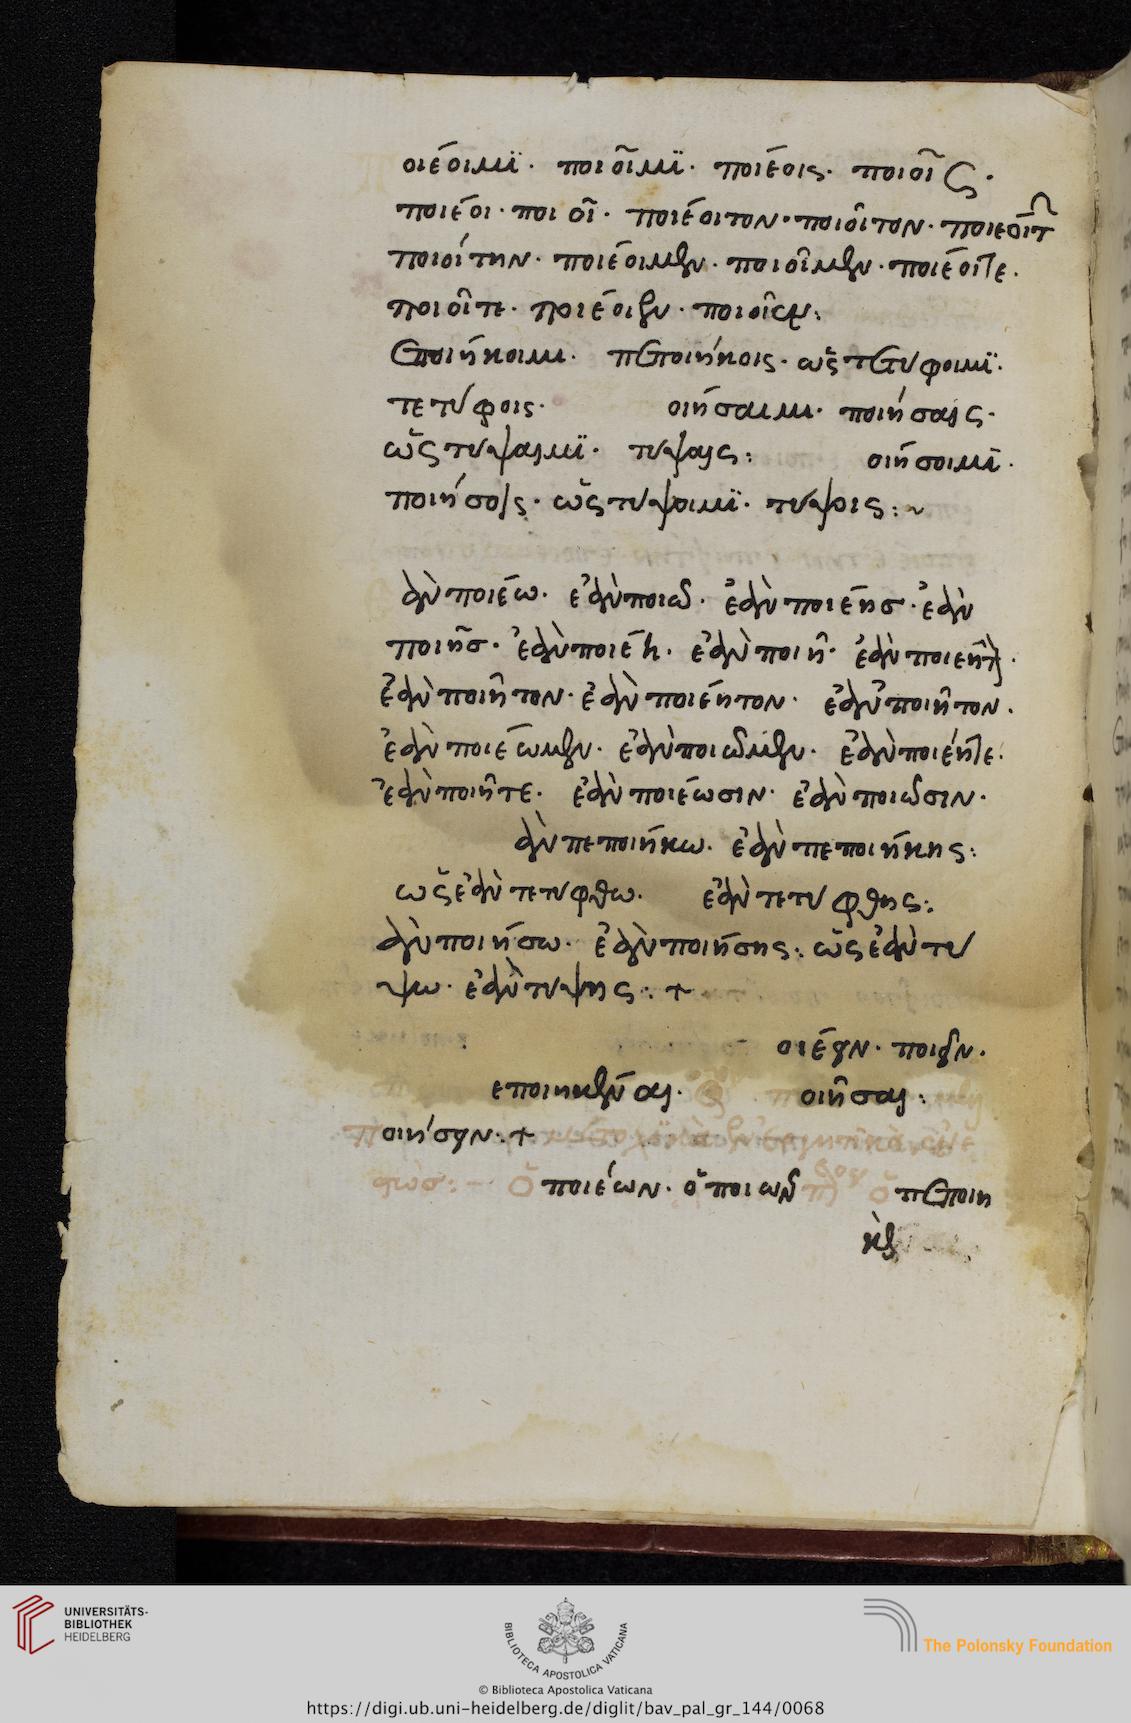 οιέοιμϊ· ποιοῖμϊ· ποιέοις· ποιοῖς·
ποιέοι· ποιοῖ· ποιέοιτον· ποιοῖτον· ποιεοίτ
ποιοίτην· ποιέοιμεν· ποιοῖμεν· ποιέοιτε·
ποιοῖτε· ποιέοιεν· ποιοῖεν:
εποιήκοιμι· πεποιήκοις· ὡς τετύφοιμϊ·
τετύφοις· οιήσαιμι· ποιήσαις·
ὡς τυψαιμϊ· τυψαις: οιήσοιμϊ·
ποιήσοις· ὡς τυψοιμϊ· τύψοις:~
ὰν ποιέω· ἐὰν ποιῶ· ἐὰν ποιέησ· ἐὰν
ποιῆσ· ἐὰν ποιέη· ἐὰν ποιῆ·
ἐὰν ποιῆτον· ἐὰν ποιέητον· ἐὰν ποιῆτον·
ἐὰν ποιέωμεν· ἐὰν ποιῶμεν· ἐὰν ποιέητε·
ἐὰν ποιῆτε· ἐὰν ποιέωσιν· ἐὰν ποιῶσιν·
ὰν πεποιήκω· ἐὰν πεποιήκης:
ὡς ἐὰν τετυφθω· ἐὰν τετυφθης:
ὰν ποιήσω· ἐὰν ποιήσης: ὡς ἐὰν τυ
ψω· ἐὰν τυψης: +
οιέειν· ποιεῖν·
εποιηκέναι· οιῆσαι:
ποιήσειν: +
φῶσ: – ὁ ποιέων· ὁ ποιῶν ὁ πεποιη
κὼς
UNIVERSITÄTS-
BIBLIOTHEK
HEIDELBERG
BIBLIOTECA APOSTOLICA VATICANA
The Polonsky Foundation
© Biblioteca Apostolica Vaticana
https://digi.ub.uni-heidelberg.de/diglit/bav_pal_gr_144/0068